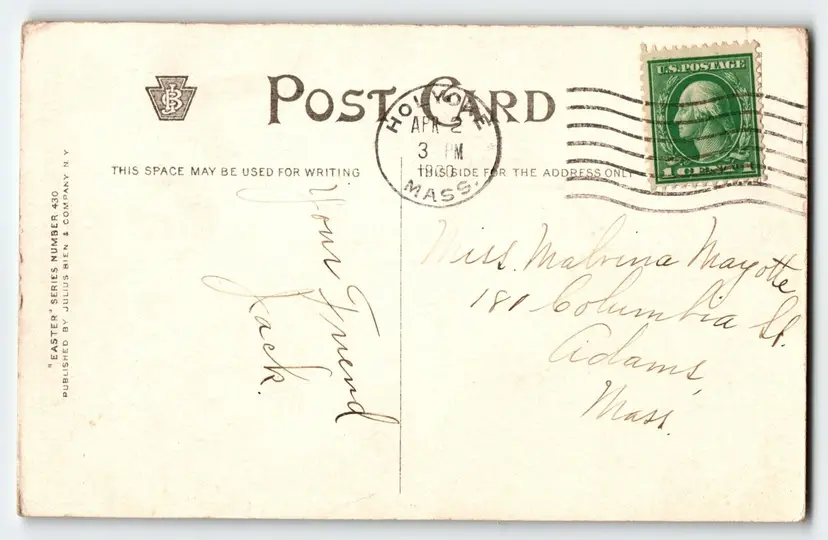 POST CARD
HOLYOKE
APR 2
3 PM
MASS.
U.S. POSTAGE
THIS SPACE MAY BE USED FOR WRITING
THIS SIDE FOR THE ADDRESS ONLY
"EASTER" SERIES NUMBER 430
PUBLISHED BY JULIUS BIEN & COMPANY N.Y.
Your Friend
Jack.
Miss. Malvina Mayotte
181 Columbia St.
Adams,
Mass.